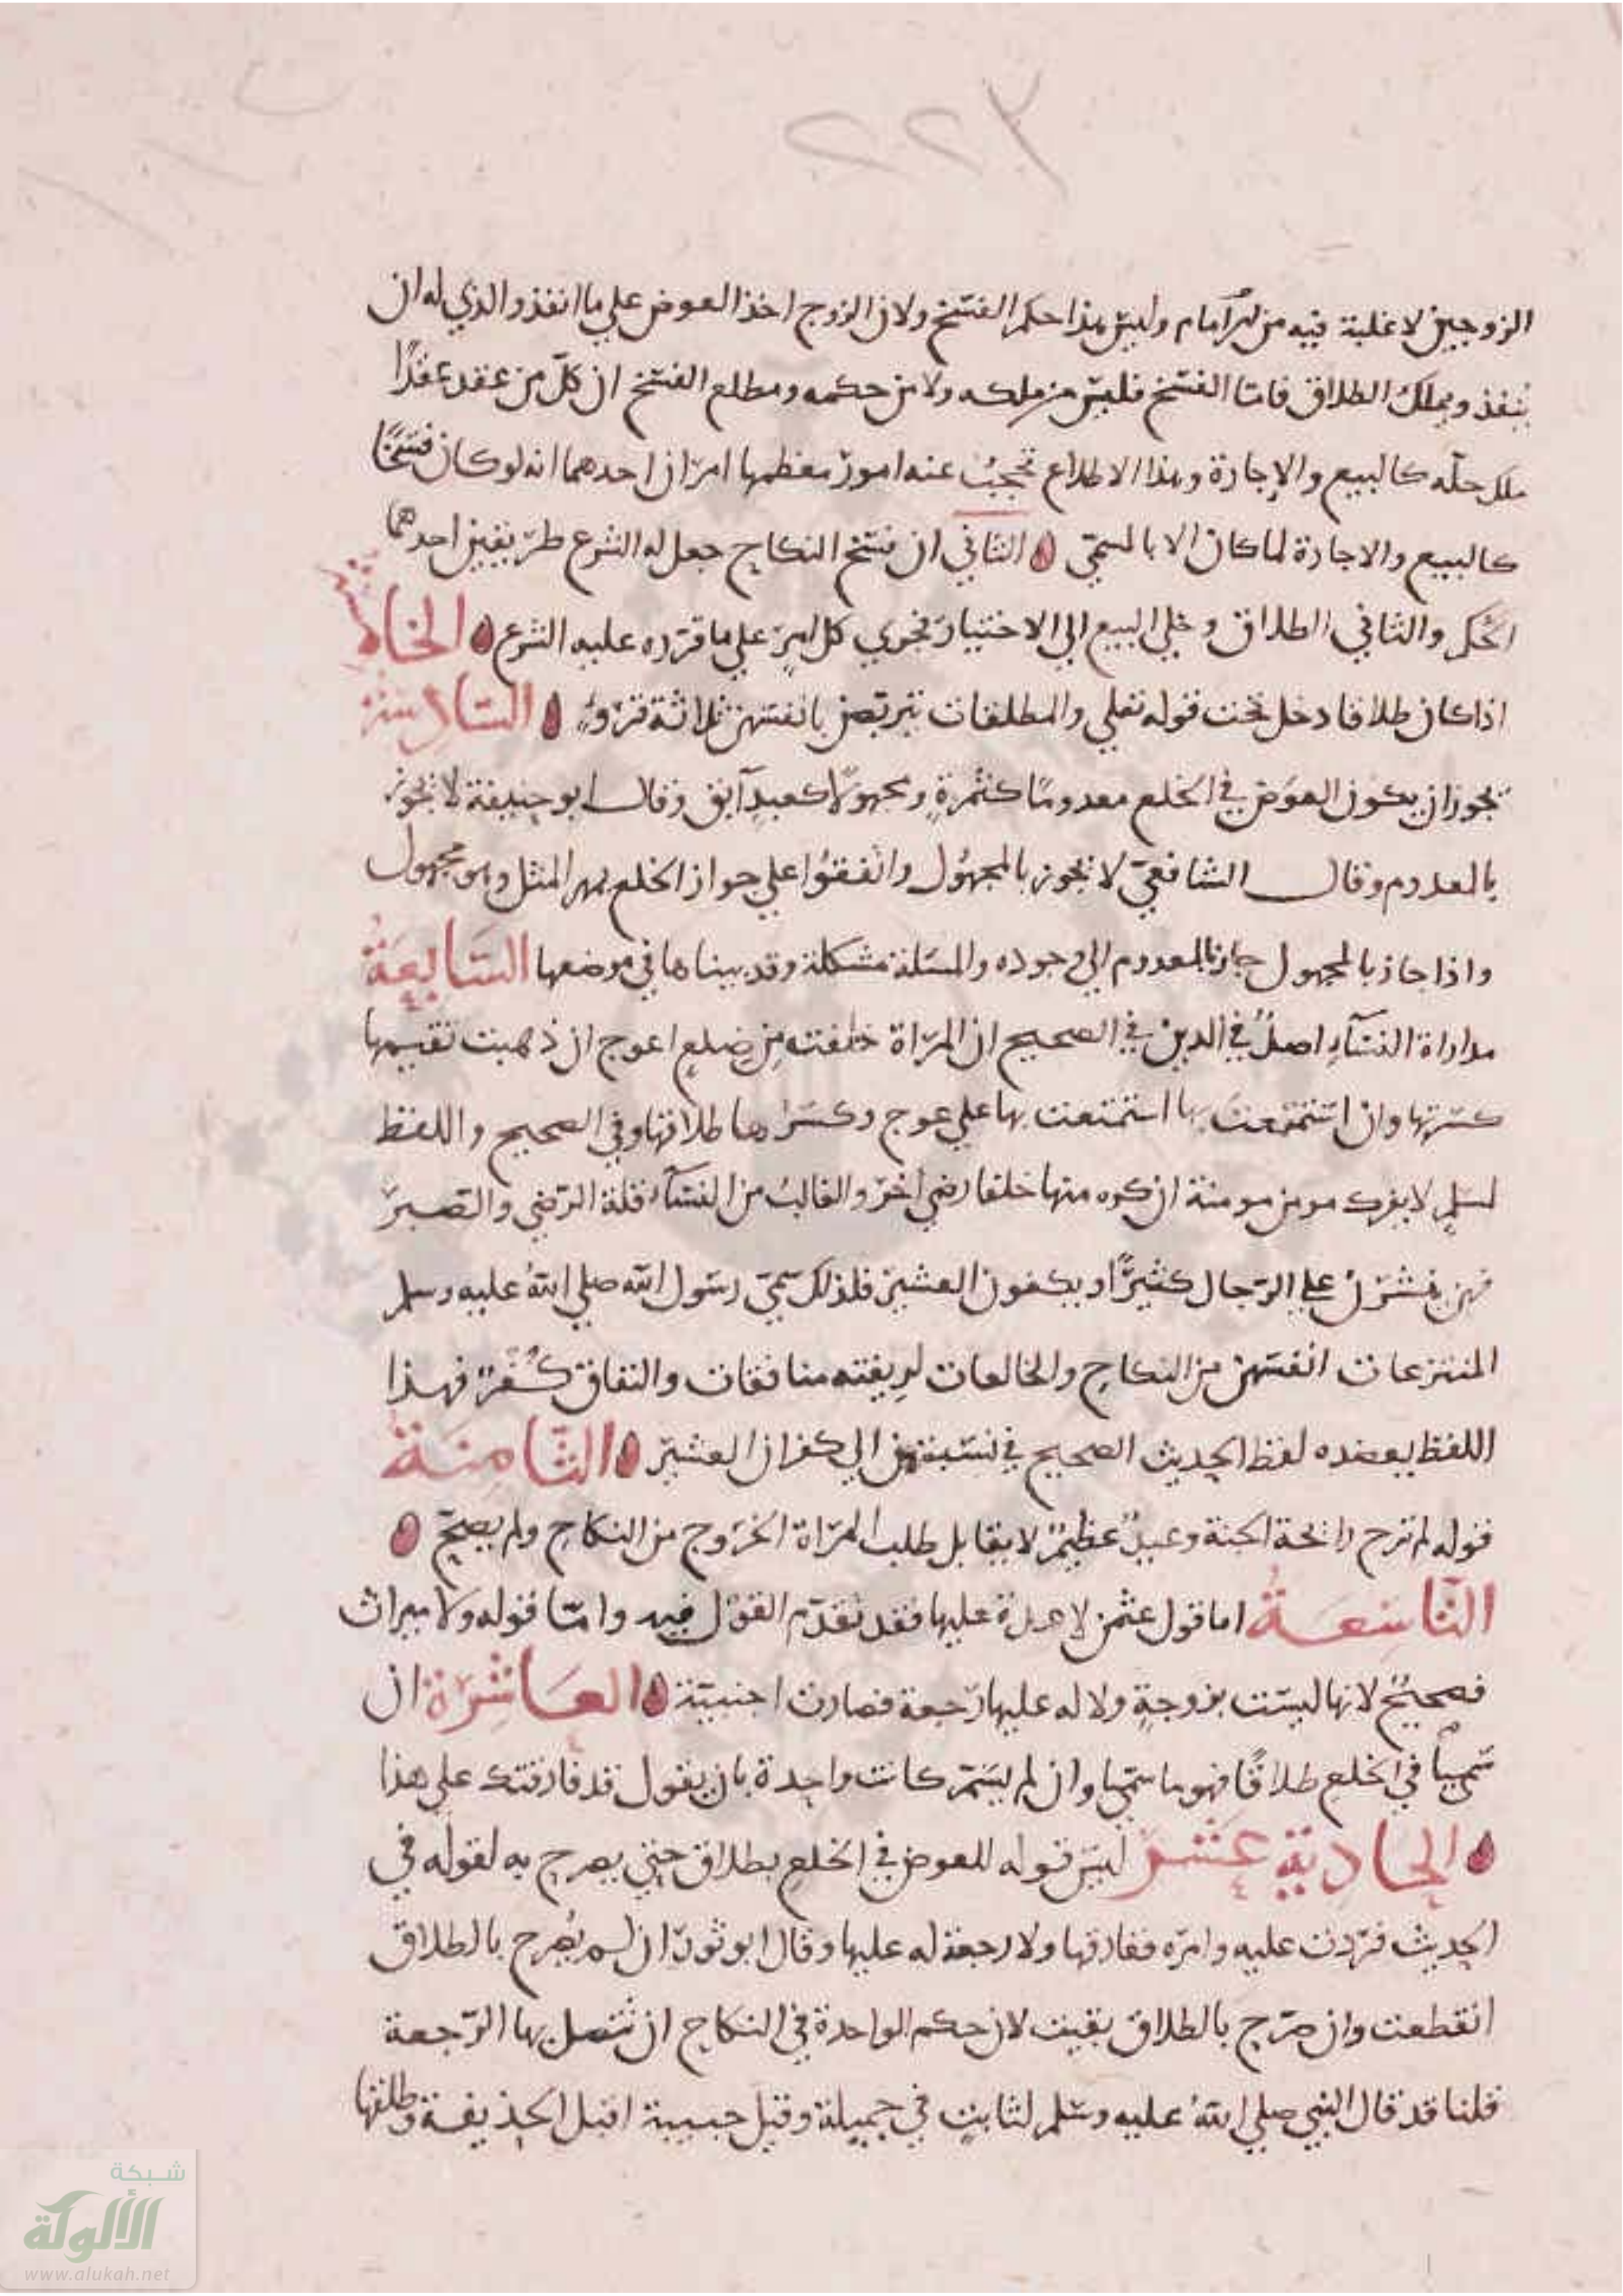 ٣٢٢
الزوجين لا غلبة فيه من امام وليس هذا حكم الفسخ ولان الزوج اخذ العوض علي ما انفذ والذي له ان
ينفذ ويملك الطلاق فاما الفسخ فليس من ملكه ولا من حكمه ومطلع الفسخ ان كل من عقد عقدًا
ملك حله كالبيع والاجارة وهذا الاطلاع تحجب عنه امور معظمها امران احدهما انه لو كان فسخًا
كالبيع والاجارة لما كان الا بالمسمّي الثاني ان فسخ النكاح جعل له الشرع طريقين احدهما
الحكم والثاني الطلاق وخلي البيع الي الاختيار فجري كل امرٍ علي ما قرره عليه الشرع الخامسة
اذا كان طلاقا دخل تحت قوله تعلي والمطلقات يتربصن بانفسهن ثلاثة قروء السادسة
يجوز ان يكون العوض في الخلع معدومًا كثمرةٍ ومجهولًا كعبدٍ آبق وقال ابو حنيفة لا يجوز
بالمعدوم وقال الشافعيّ لا يجوز بالمجهول واتفقوا علي جواز الخلع بمهر المثل وهو مجهول
واذا جاز بالمجهول جاز بالمعدوم الي وجوده والمسلة مشكلة وقد بيناها في موضعها السابعة
مداراة النسآء اصلٌ في الدين في الصحيح ان المراة خلقت من ضلع اعوج ان ذهبت تقيمها
كسرتها وان استمتعت بها استمتعت بها علي عوج وكسرها طلاقها وفي الصحيح واللفظ
لمسلم لا يفرك مومن مومنة ان كره منها خلقا رضي اخر والغالب من النسآء قلة الرضي والصبر
فهن ينشزن علي الرجال كثيرًا ويكفرن العشير فلذلك سمّي رسول الله صلي الله عليه وسلم
المنتزعات انفسهن من النكاح والخالعات لربقته منافقات والنفاق كفر فهذا
اللفظ يعضده لفظ الحديث الصحيح في نسبتهن الي كفران العشير الثامنة
قوله لم ترح رائحة الجنة وعيدٌ عظيمٌ لا يقابل طلب المراة الخروج من النكاح ولم يصح
التاسعة اما قول عثمن لا عدة عليها فقد تقدم القول فيه وامّا قوله ولا ميراث
فصحيحٌ لانها ليست بزوجةٍ ولا له عليها رجعة فصارت اجنبيّة العاشرة ان
سميا في الخلع طلاقًا فهو ما سمّيا وان لم يسم كانت واحدة بان يقول قد فارقتك علي هذا
الحادية عشر ليس قبوله للعوض في الخلع بطلاق حتي يصرح به لقوله في
الحديث فردت عليه وامره ففارقها ولا رجعة له عليها وقال ابو ثور ان لم يصرح بالطلاق
انقطعت وان صرّح بالطلاق بقيت لان حكم الواحدة في النكاح ان تتصل بها الرجعة
قلنا قد قال النبي صلي الله عليه وسلم لثابت في جميلة وقيل حبيبة اقبل الحديقة وطلقها
شبكة
الألوكة
www.alukah.net